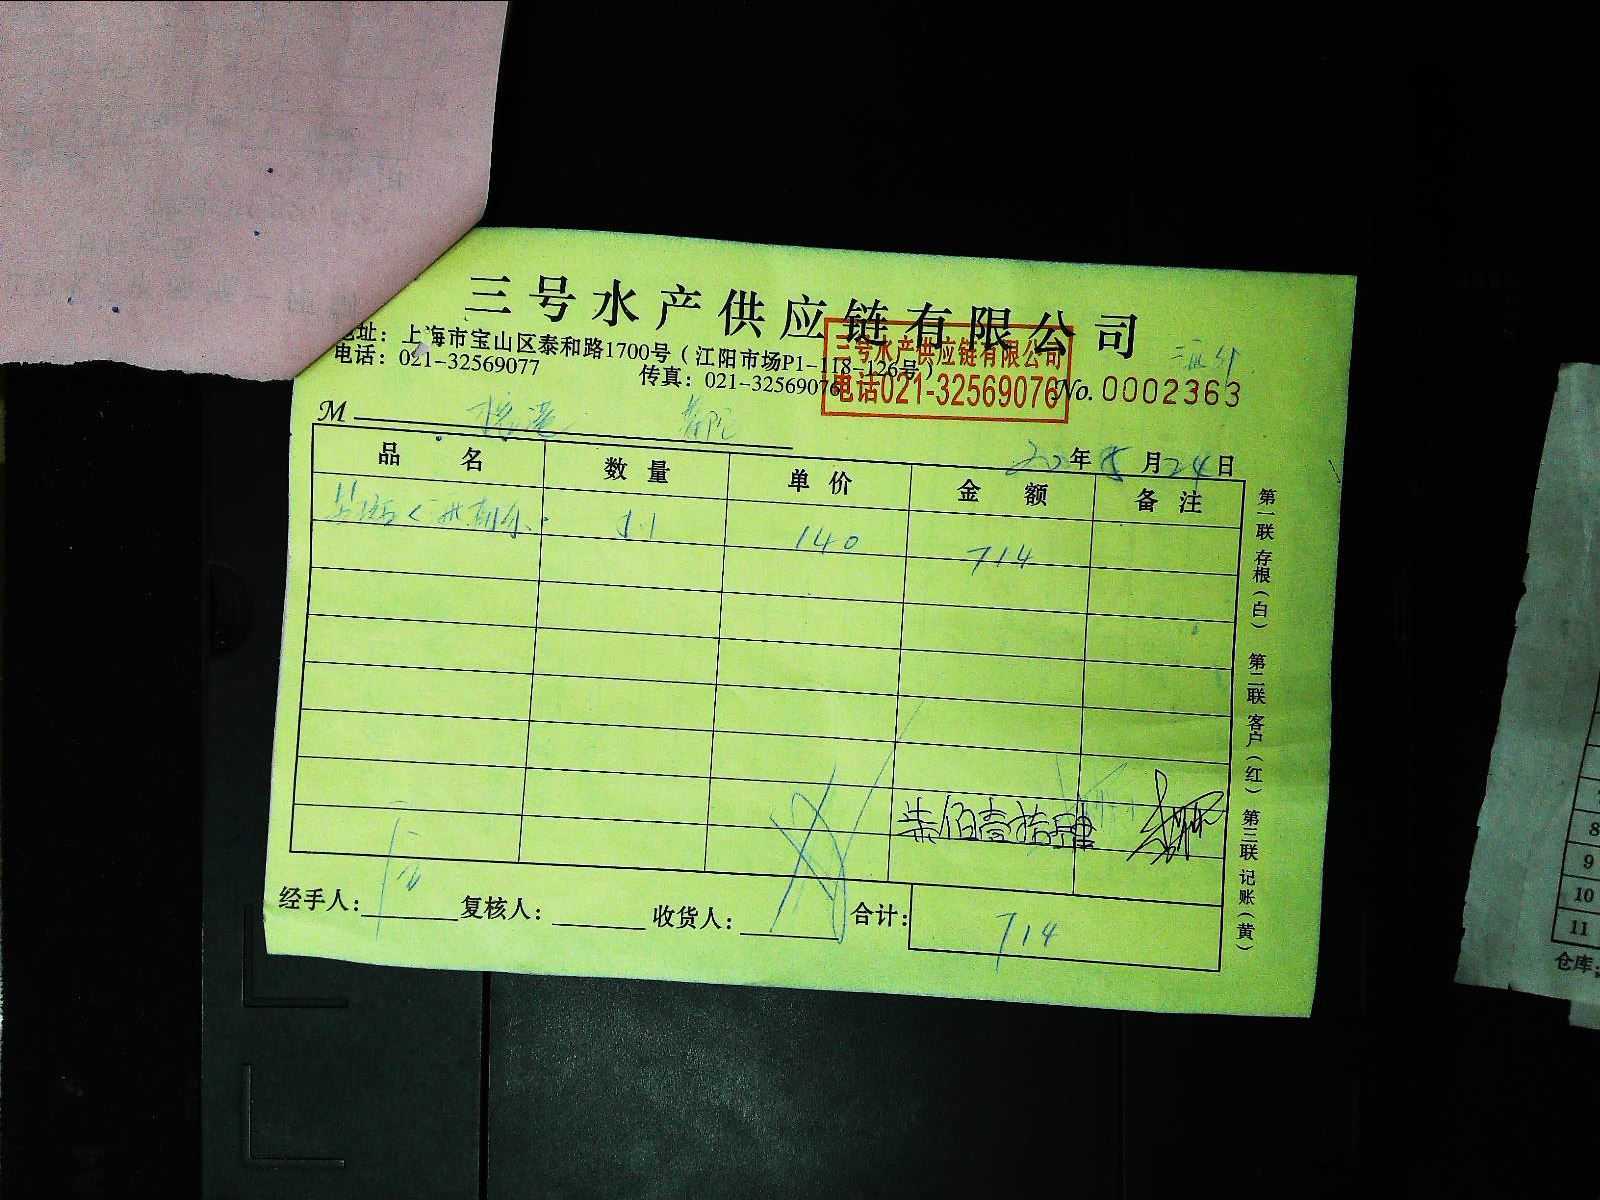 三号水产供应链有限公司
地址：上海市宝山区泰和路1700号（江阳市场P1-118-126号）
电话：021-32569077 传真：021-32569076
三号水产供应链有限公司
电话021-32569076
No. 0002363
M
20年 月24日
品名 数量 单价 金额 备注
5.1 140 714
柒佰壹拾肆
经手人： 复核人： 收货人： 合计： 714
第一联 存根（白） 第二联 客户（红） 第三联 记账（黄）
8
9
10
11
仓库：